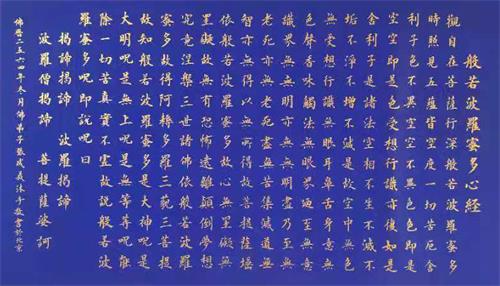 般若波羅蜜多心經
觀自在菩薩行深般若波羅蜜多
時照見五蘊皆空度一切苦厄舍
利子色不異空空不異色色即是
空空即是色受想行識亦復如是
舍利子是諸法空相不生不滅不
垢不淨不增不減是故空中無色
無受想行識無眼耳鼻舌身意無
色聲香味觸法無眼界乃至無意
識界無無明亦無無明盡乃至無
老死亦無老死盡無苦集滅道無
智亦無得以無所得故菩提薩埵
依般若波羅蜜多故心無罣礙無
罣礙故無有恐怖遠離顛倒夢想
究竟涅槃三世諸佛依般若波羅
蜜多故得阿耨多羅三藐三菩提
故知般若波羅蜜多是大神呪是
大明呪是無上呪是無等等呪能
除一切苦真實不虛故說般若波
羅蜜多呪即說呪曰
揭諦揭諦 波羅揭諦
波羅僧揭諦 菩提薩婆訶
佛曆二五六四年叁月佛弟子張成義沐手敬書於北京